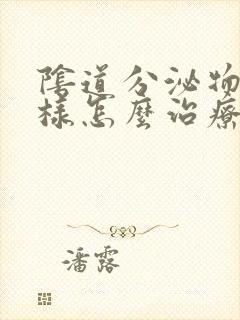 陰道分泌物
樣怎麼治療
潘露